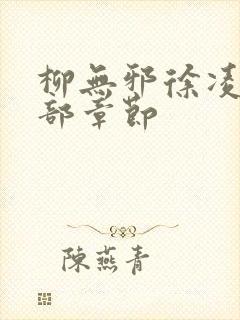 柳無邪徐凌
部章節
陳燕青